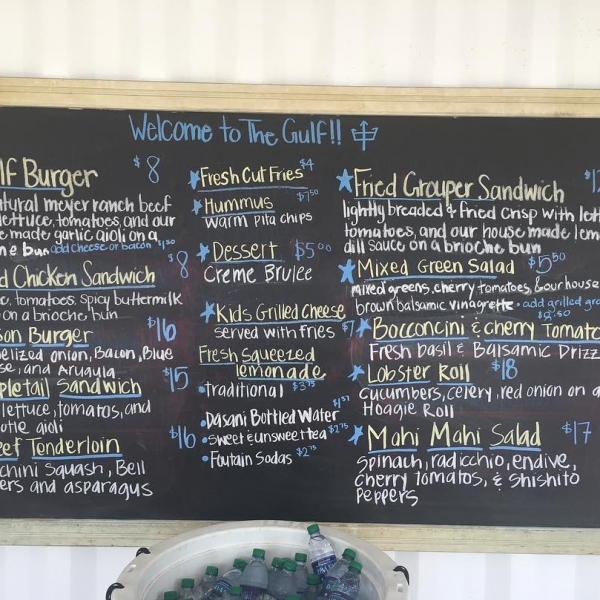 Welcome to The Gulf!!
lf Burger $8
atural meyer ranch beef
lettuce, tomatoes, and our
e made garlic aioli on a
ne bun add cheese or bacon $1.50
d Chicken Sandwich $8
ce, tomatoes, spicy buttermilk
on a brioche bun
son Burger $16
elized onion, Bacon, Blue
se, and Arugula
pletail Sandwich $15
lettuce, tomatos, and
otle aioli
eef Tenderloin $16
chini squash, Bell
ers and asparagus
Fresh Cut Fries $4
Hummus $7.50
warm pita chips
Dessert $5.00
Creme Brulee
Kids Grilled Cheese
served with fries $7
Fresh Squeezed
lemonade
traditional $3.75
Dasani Bottled Water
sweet & unsweet tea $2.75
Foutain Sodas $2.75
Fried Grouper Sandwich
lightly breaded & fried crisp with lett
tomatoes, and our house made lem
dill sauce on a brioche bun
Mixed Green Salad $5.50
mixed greens, cherry tomatoes, & our house
brown balsamic vinagrette. add grilled gro
Bocconcini & cherry Tomato
Fresh basil & Balsamic Drizz
Lobster Roll $18
Cucumbers, celery, red onion on a
Hoagie Roll
Mahi Mahi Salad $17
Spinach, radicchio, endive,
Cherry tomatos, & Shishito
Peppers